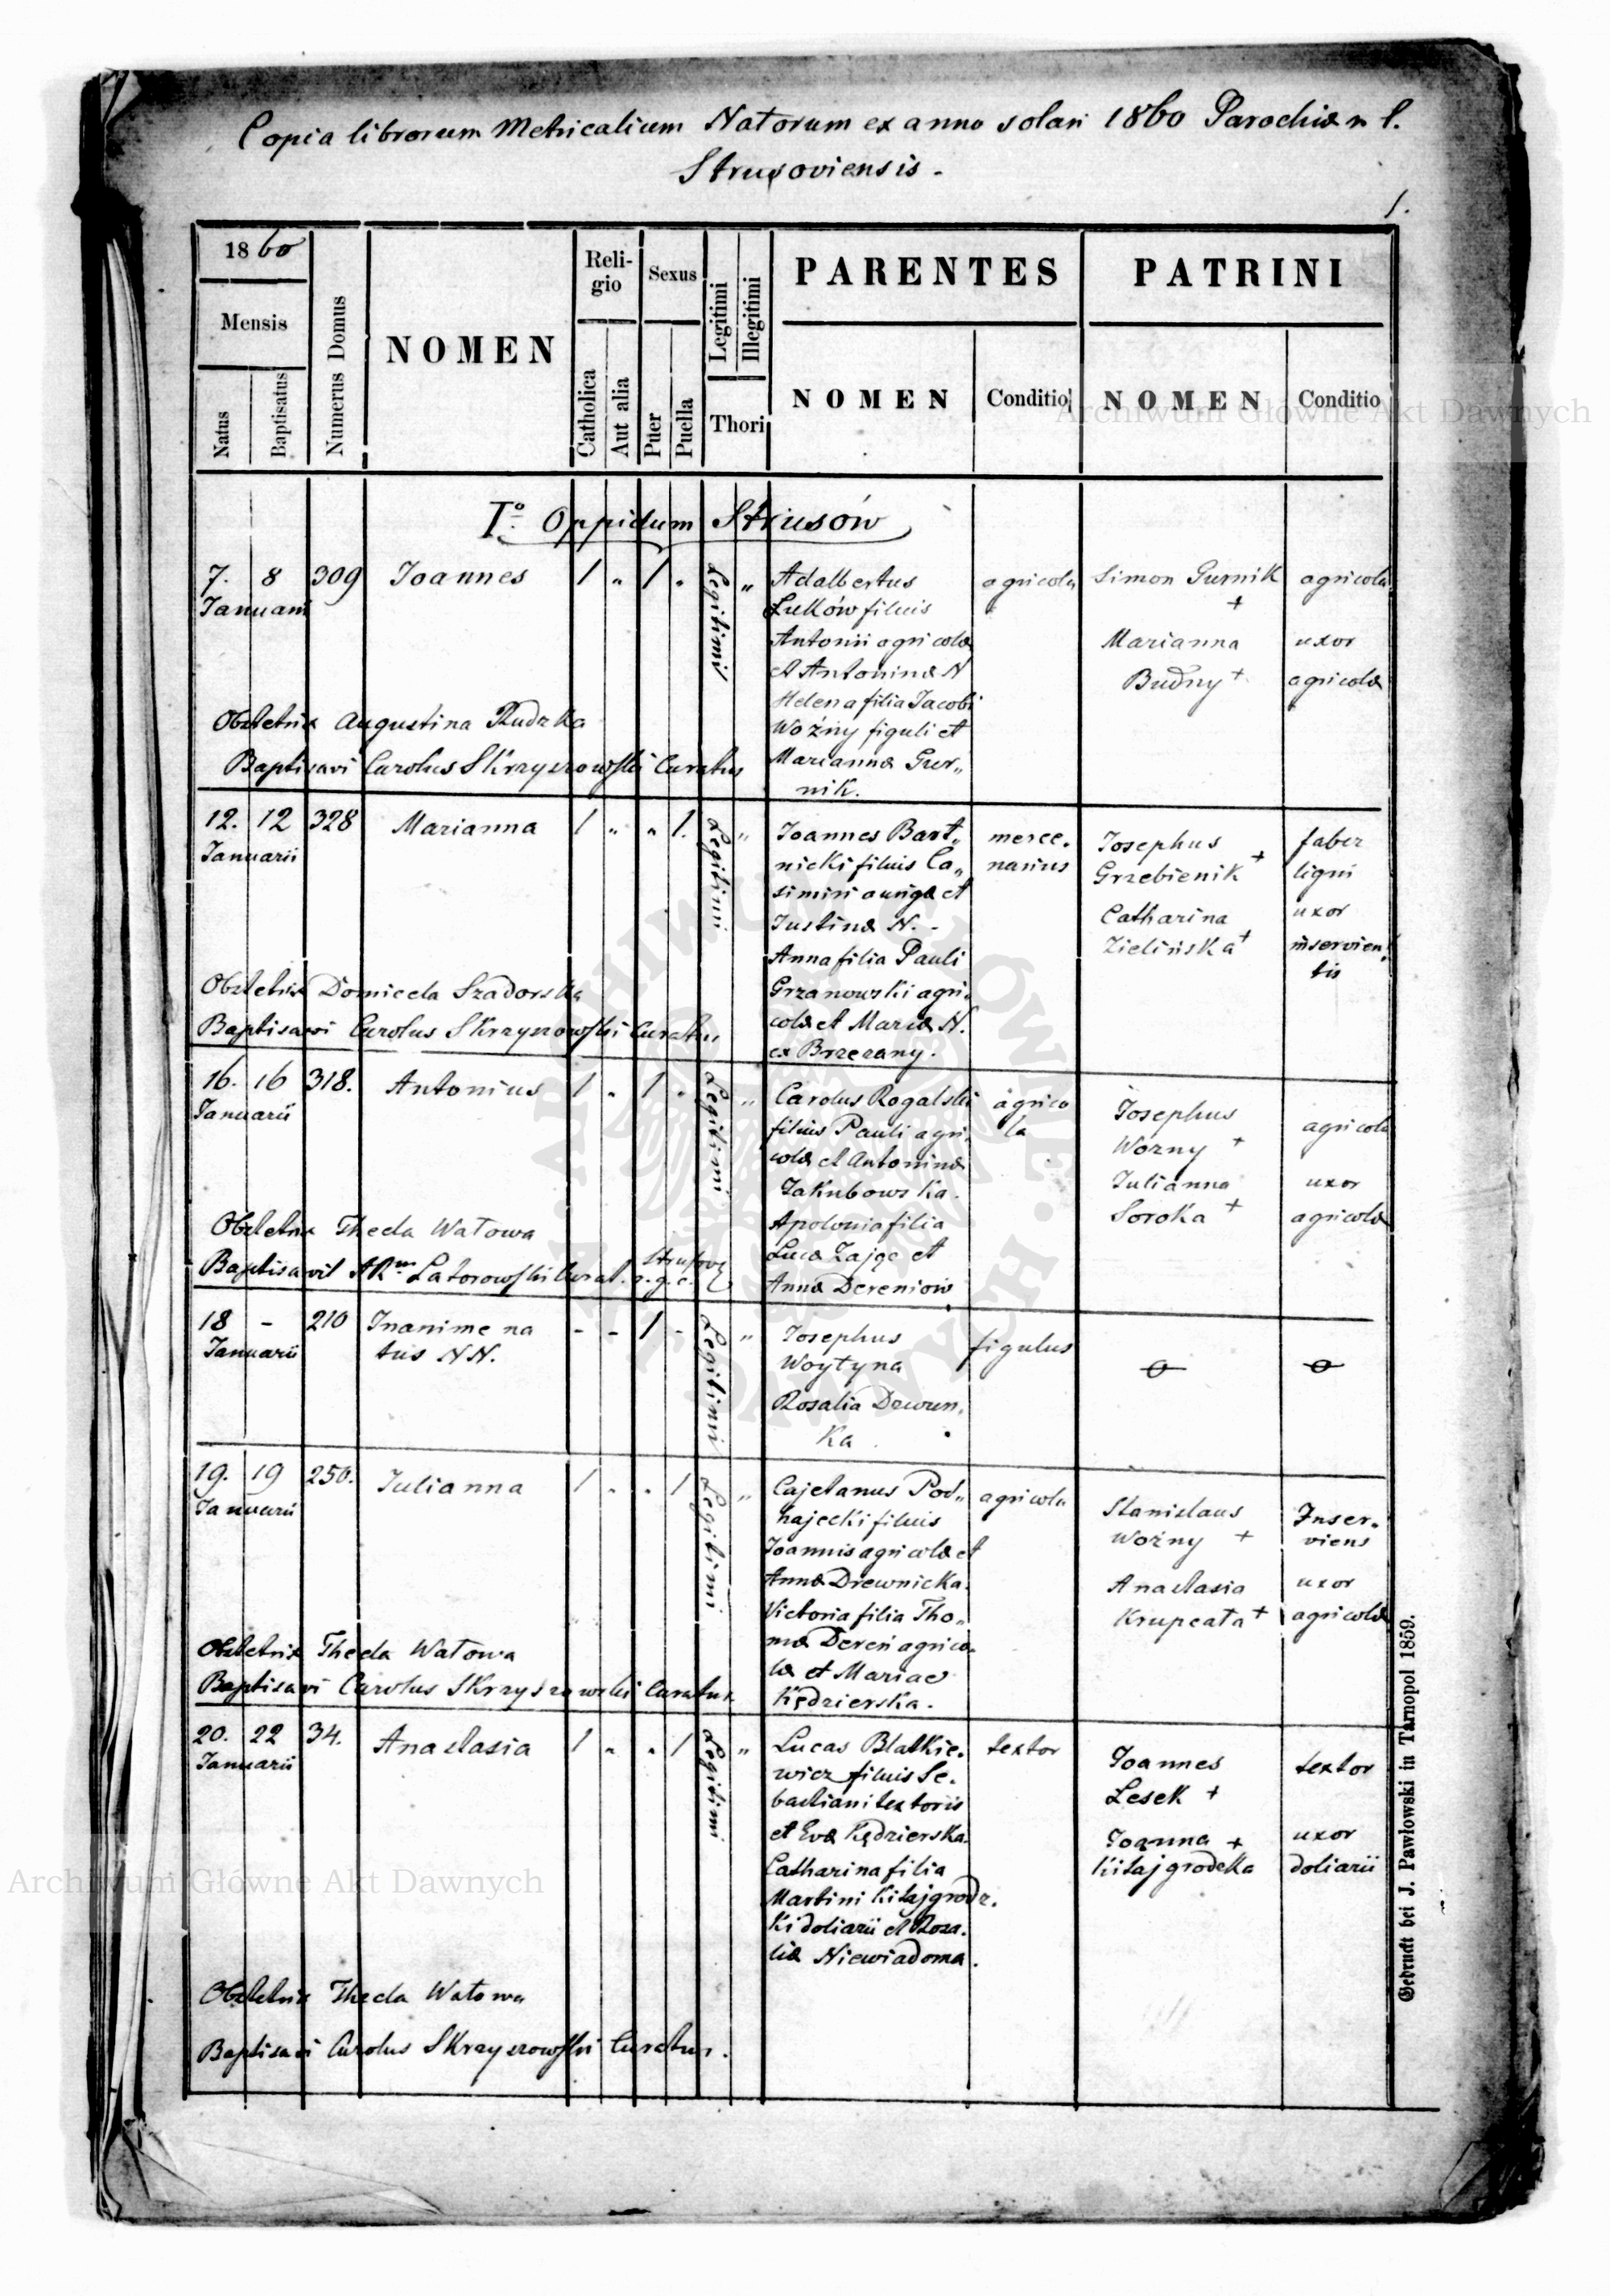 Copia librorum Metricalium Natorum ex anno solari 1860 Parochiæ r. l.
Strusoviensis.
1.
1860
Mensis
Natus
Baptisatus
Numerus Domus
NOMEN
Reli-
gio
Catholica
Aut alia
Sexus
Puer
Puella
Legitimi
Illegitimi
Thori
PARENTES
NOMEN
Conditio
PATRINI
NOMEN
Conditio
Archiwum Główne Akt Dawnych
I° Oppidum Strusów
7. 8 309 Joannes 1 " 1 " Legitimi "
Januarii
Adalbertus
Łuków filius
Antonii agricolæ
et Antoninæ N
Helena filia Jacobi
Woźny figuli et
Mariannæ Gur„
nik.
agricola
Simon Gurnik
+
Marianna
Budny +
agricola
uxor
agricolæ
Obstetrix Augustina Rudzka
Baptisavi Carolus Skrzyszowski Curatus
12. 12 328 Marianna 1 " " 1. Legitimi "
Januarii
Joannes Bart„
nicki filius Ca„
simiri aurigæ et
Justinæ N. -
Anna filia Pauli
Grzanowski agri„
colæ et Mariæ N.
ex Brzezany.
merce„
narius
Josephus
Grzebienik +
Catharina
Zielińska +
faber
ligni
uxor
inservien„
tis
Obstetrix Domicela Szadorska
Baptisavi Carolus Skrzyszowski Curatus
16. 16 318. Antonius 1 " 1 " Legitimi "
Januarii
Carolus Rogalski
filius Pauli agri„
colæ et Antoninæ
Jakubowska.
Apolonia filia
Lucæ Zając et
Annæ Dereniow
agrico
la
Josephus
Wozny +
Julianna
Soroka +
agricola
uxor
agricolæ
Obstetrix Thecla Watowa
Baptisavit AR^m Latorowski Curat. r. g. c.
18 - 210 Inanime na - - 1 - Legitimi "
Januarii
tus NN.
Josephus
Woytyna
Rosalia Drewen„
ka.
figulus
19. 19 250. Julianna 1 " " 1 Legitimi "
Januarii
Cajetanus Pod„
hajecki filius
Joannis agricolæ et
Annæ Drewnicka.
Victoria filia Tho„
mæ Dereń agrico„
læ et Mariae
Kędzierska.
agricola
Stanislaus
Woźny +
Anastasia
Krupcata +
Inser„
viens
uxor
agricolæ
Obstetrix Thecla Watowa
Baptisavi Carolus Skrzyszowski Curatus
20. 22 34. Anastasia 1 " " 1 Legitimi "
Januarii
Lucas Blatkie„
wicz filius Se„
bastiani textoris
et Evæ Kędzierska.
Catharina filia
Martini Kitajgrodz„
ki doliarii et Rosa„
liæ Niewiadoma.
textor
Joannes
Lesek +
Joanna +
Kitajgrodcka
textor
uxor
doliarii
Obstetrix Thecla Watowa
Baptisavi Carolus Skrzyszowski Curatus.
Archiwum Główne Akt Dawnych
Gedruckt bei J. Pawłowski in Tarnopol 1859.